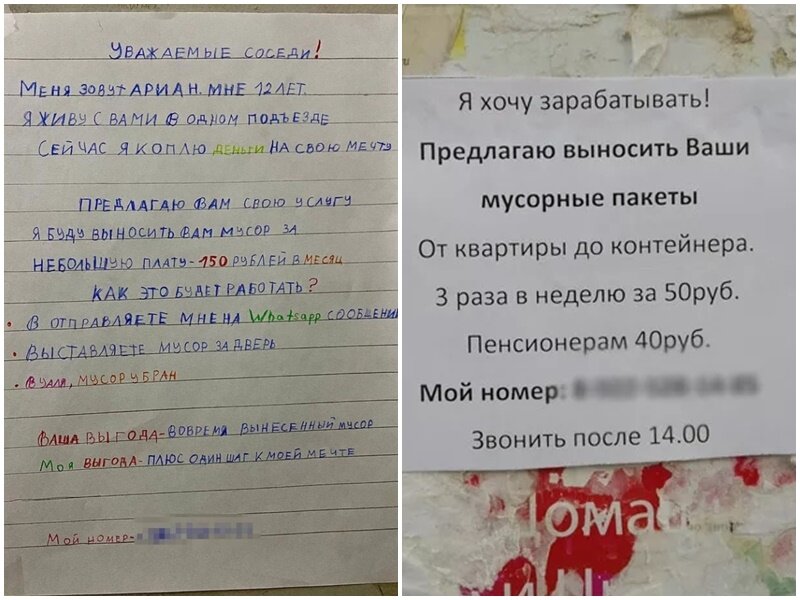 УВАЖАЕМЫЕ СОСЕДИ!
МЕНЯ ЗОВУТ АРИАН. МНЕ 12 ЛЕТ.
Я ЖИВУ С ВАМИ В ОДНОМ ПОДЪЕЗДЕ
СЕЙЧАС Я КОПЛЮ ДЕНЬГИ НА СВОЮ МЕЧТУ
ПРЕДЛАГАЮ ВАМ СВОЮ УСЛУГУ
Я БУДУ ВЫНОСИТЬ ВАМ МУСОР ЗА
НЕБОЛЬШУЮ ПЛАТУ-150 РУБЛЕЙ В МЕСЯЦ
КАК ЭТО БУДЕТ РАБОТАТЬ?
• В ОТПРАВЛЯЕТЕ МНЕ НА Whatsapp СООБЩЕНИ
• ВЫСТАВЛЯЕТЕ МУСОР ЗА ДВЕРЬ
• ВУАЛЯ, МУСОР УБРАН
ВАША ВЫГОДА-ВОВРЕМЯ ВЫНЕСЕННЫЙ МУСОР
МОЯ ВЫГОДА-ПЛЮС ОДИН ШАГ К МОЕЙ МЕЧТЕ
МОЙ НОМЕР-
Я хочу зарабатывать!
Предлагаю выносить Ваши
мусорные пакеты
От квартиры до контейнера.
3 раза в неделю за 50руб.
Пенсионерам 40руб.
Мой номер:
Звонить после 14.00
Дома